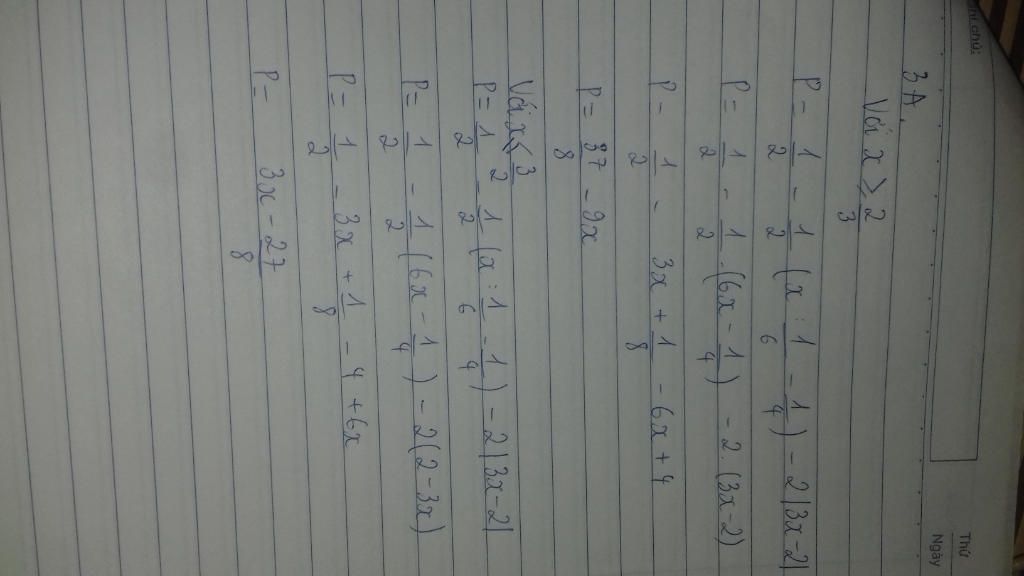 Thứ
Ngày
3A,
Với x ≥ 2/3
P = 1/2 - 1/2 (x : 1/6 - 1/4) - 2|3x-2|
P = 1/2 - 1/2 . (6x - 1/4) - 2 . (3x-2)
P = 1/2 - 3x + 1/8 - 6x + 4
P = 37/8 - 9x
Với x < 3/2
P = 1/2 - 1/2 (x : 1/6 - 1/4) - 2|3x-2|
P = 1/2 - 1/2 (6x - 1/4) - 2(2-3x)
P = 1/2 - 3x + 1/8 - 4 + 6x
P = 3x - 27/8